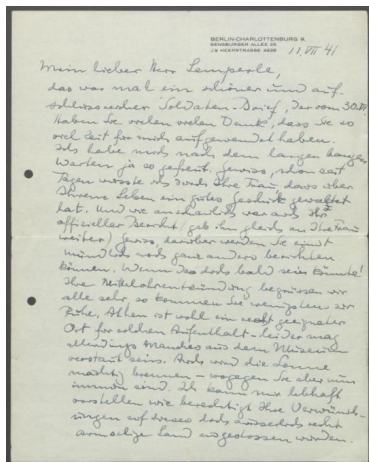 BERLIN-CHARLOTTENBURG 9.
SENSBURGER ALLEE 25
J9 HEERSTRASSE 4828
11. VII 41
Mein lieber Herr Lemperle,
das war mal ein schöner und auf-
schlussreicher Soldaten-Brief, der vom 30.VI.
Haben Sie vielen vielen Dank, dass Sie so
viel Zeit für mich aufgewendet haben.
Ich habe mich nach dem langen bangen
Warten ja so gefreut. Gewiss, schon seit
Tagen wusste ich durch Ihre Frau, dass über
Ihrem Leben ein gutes Geschick gewaltet
hat. Und wie anschaulich war auch Ihr
offizieller Bericht (gab ihn gleich an Ihre Frau
weiter) gewiss, darüber werden Sie einst
mündlich noch ganz anders berichten
können. Wenn das doch bald sein könnte!
Ihre Mittelohrentzündung begrüssen wir
alle sehr, so kommen Sie wenigstens zur
Ruhe. Athen ist wohl ein recht geeigneter
Ort für solchen Aufenthalt – leider mag
allerdings manches aus dem Museum
verstaut sein. Auch wird die Sonne
mächtig brennen – wogegen Sie aber nun
immun sind. Ich kann mir lebhaft
vorstellen wie berechtigt Ihre Verwünsch-
ungen auf dieses doch äusserlich recht
armselige Land ausgestossen wurden.